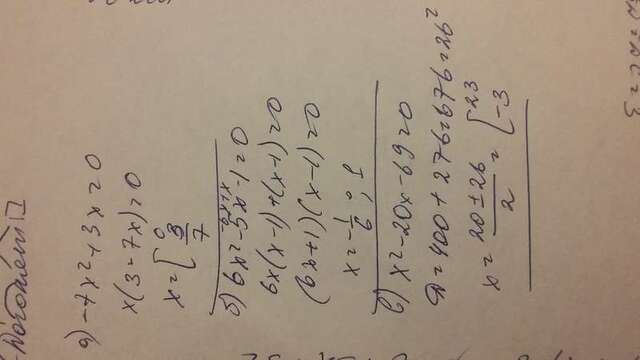 а) -7x²+3x=0
x(3-7x)=0
x=[0
3/7
б) 6x²-5x-1=0
-6x+x
6x(x-1)+(x-1)=0
(6x+1)(x-1)=0
x=-1/6; 1
в) x²-20x-69=0
D=400+276=676=26²
x=(20±26)/2=[23
-3